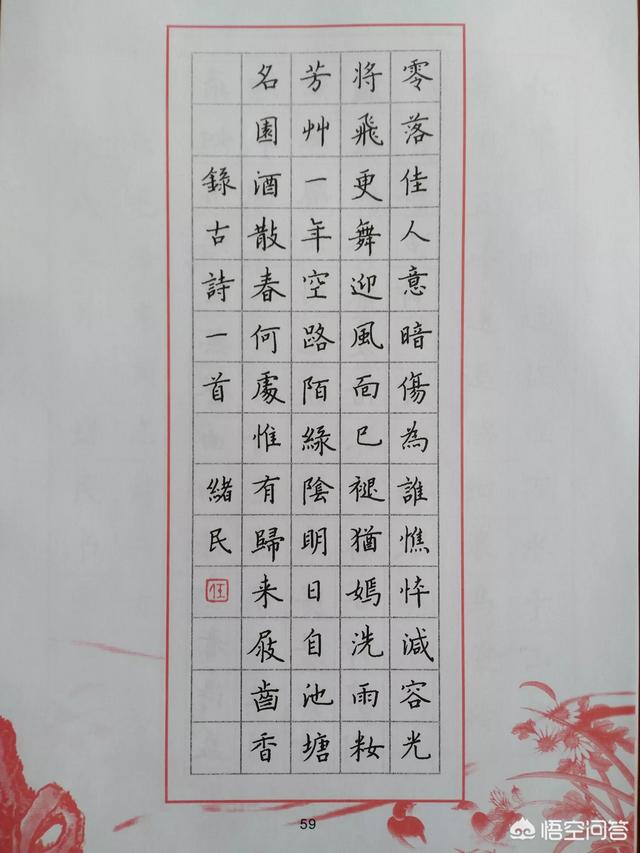 零落佳人意暗傷為誰憔悴減容光
將飛更舞迎風靣已褪猶嫣洗雨籹
芳艸一年空路陌綠陰明日自池塘
名園酒散春何處惟有歸来屐齒香
錄古詩一首 緒民
59
悟空问答